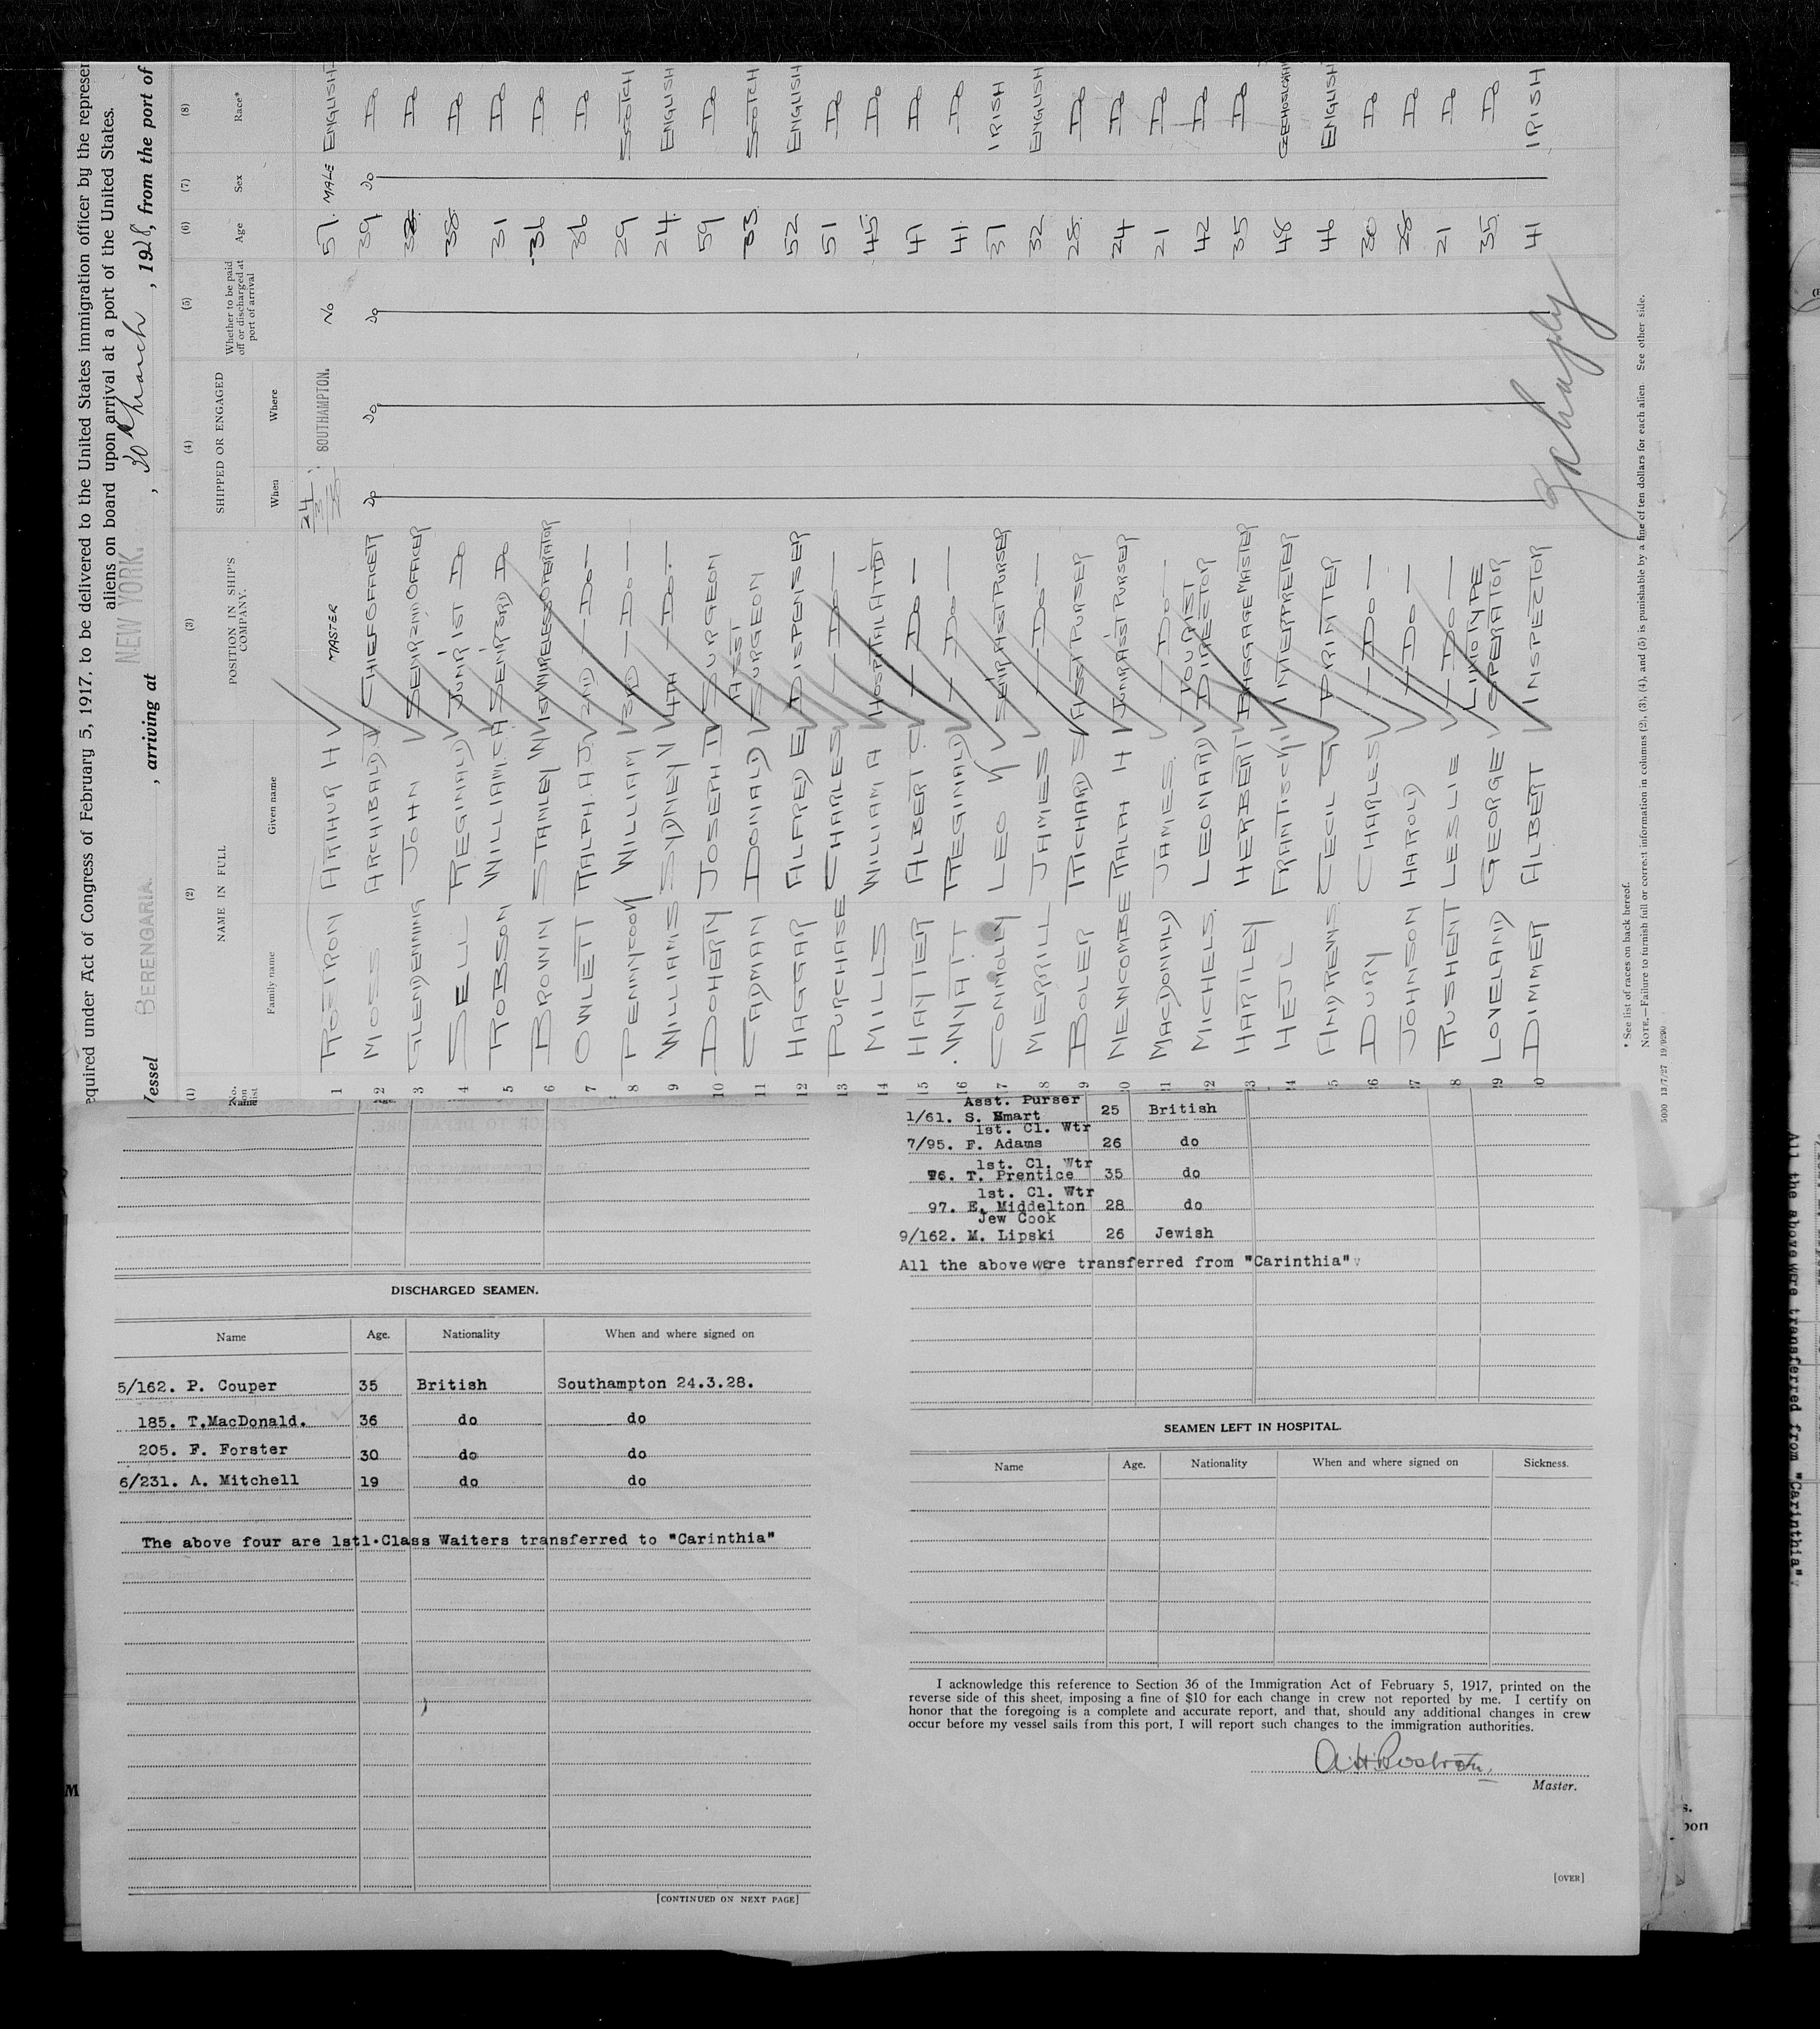 equired under Act of Congress of February 5, 1917, to be delivered to the United States immigration officer by the represen
aliens on board upon arrival at a port of the United States.
Vessel BERENGARIA. , arriving at NEW YORK. , 30 March , 1928, from the port of
(1) (2) (3) (4) (5) (6) (7) (8)
No. on list NAME IN FULL POSITION IN SHIP'S COMPANY. SHIPPED OR ENGAGED Whether to be paid off or discharged at port of arrival Age Sex Race*
Family name Given name When Where
1 ROSTRON ARTHUR H MASTER 24/3/28 SOUTHAMPTON. No 57. MALE ENGLISH
2 MOSS ARCHIBALD J CHIEF OFFICER Do Do Do 39 Do Do
3 GLENDENNING JOHN SENR 2ND OFFICER Do
4 SELL REGINALD JUNR 1ST Do 38 Do
5 ROBSON WILLIAM.C.A SENR 3RD Do 31 Do
6 BROWN STANLEY W 1ST WIRELESS OPERATOR 36 Do
7 OWLETT RALPH.A.J. 2ND — Do — 36 Do
8 PENNYCOOK WILLIAM 3RD — Do — 29 SCOTCH
9 WILLIAMS SYDNEY V 4TH — Do. — 24. ENGLISH
10 DOHERTY JOSEPH D SURGEON 59 Do
11 CADMAN DONALD ASST SURGEON 33. SCOTCH
12 HAGGAR ALFRED E DISPENSER 52 ENGLISH
13 PURCHASE CHARLES — Do — 51 Do
14 MILLS WILLIAM A HOSPITAL ATTDT 45 Do
15 HAYTER ALBERT C — Do — 47 Do
16 WYATT REGINALD — Do — 41. Do
17 CONNOLLY LEO Y SENR ASST PURSER 37 IRISH
18 MERRILL JAMES — Do — 32 ENGLISH
19 BOLER RICHARD S ASST PURSER 28. Do
20 NEWCOMBE RALPH H JUNR ASST PURSER 24 Do
21 MACDONALD JAMES. — Do — 21 Do
22 MICHELS. LEONARD TOURIST DIRECTOR 42 Do
23 HARTLEY HERBERT BAGGAGE MASTER 35 Do
24 HEJL FRANTISCH INTERPRETER 48
25 ANDREWS. CECIL G PRINTER 46 ENGLISH
26 DURY CHARLES — Do — 30 Do
27 JOHNSON HAROLD — Do — 28 Do
28 RUSHENT LESLIE — Do — 21 Do
29 LOVELAND GEORGE LINOTYPE OPERATOR 35. Do
30 DIMMER ALBERT INSPECTOR 41 IRISH
* See list of races on back hereof.
NOTE.—Failure to furnish full or correct information in columns (2), (3), (4), and (5) is punishable by a fine of ten dollars for each alien See other side.
5000 13/7/27 19/9290
DISCHARGED SEAMEN.
Name Age. Nationality When and where signed on
5/162. P. Couper 35 British Southampton 24.3.28.
185. T.MacDonald. 36 do do
205. F. Forster 30 do do
6/231. A. Mitchell 19 do do
The above four are 1st1.Class Waiters transferred to "Carinthia"
[CONTINUED ON NEXT PAGE]
Asst. Purser
1/61. S. Smart 25 British
1st. Cl. Wtr
7/95. F. Adams 26 do
1st. Cl. Wtr
96. T. Prentice 35 do
1st. Cl. Wtr
97. E. Middelton 28 do
Jew Cook
9/162. M. Lipski 26 Jewish
All the above were transferred from "Carinthia"
SEAMEN LEFT IN HOSPITAL.
Name Age. Nationality When and where signed on Sickness.
I acknowledge this reference to Section 36 of the Immigration Act of February 5, 1917, printed on the
reverse side of this sheet, imposing a fine of $10 for each change in crew not reported by me. I certify on
honor that the foregoing is a complete and accurate report, and that, should any additional changes in crew
occur before my vessel sails from this port, I will report such changes to the immigration authorities.
A.H.Rostron.
Master.
[OVER]
All the above were transferred from "Carinthia"